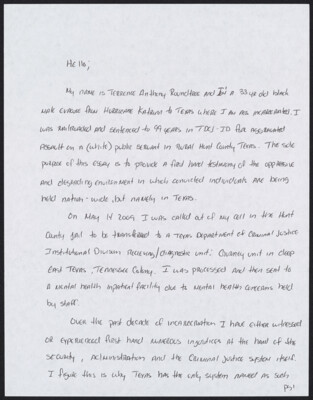 Hello;
My name is Terrence Anthony Roundtree and I'm a 33 yr old black
male evacuee from Hurricane Katrina to Texas where I am now incarcerated. I
was and sentenced to 99 years in TDCJ-ID for aggravated
assault on a (white) public servant in rural Hunt County Texas. The sole
purpose of this essay is to provide a first hand testimony of the oppressive
and degrading environment in which convicted individuals are being
held nation-wide, but namely in Texas.
On May 14 2009 I was called out of my cell in the Hunt
County jail to be transferred to a Texas Department of Criminal Justice
Institutional Division receiving/diagnostic unit: Gurney unit in deep
East Texas, Tennessee Colony. I was processed and then sent to
a mental health inpatient facility due to mental health concerns held
by staff.
Over the past decade of incarceration I have either witnessed
or experienced first hand numerous injustices at the hand of the
security, administration and the Criminal Justice system itself.
I figure this is why Texas has the only system named as such
pg 1